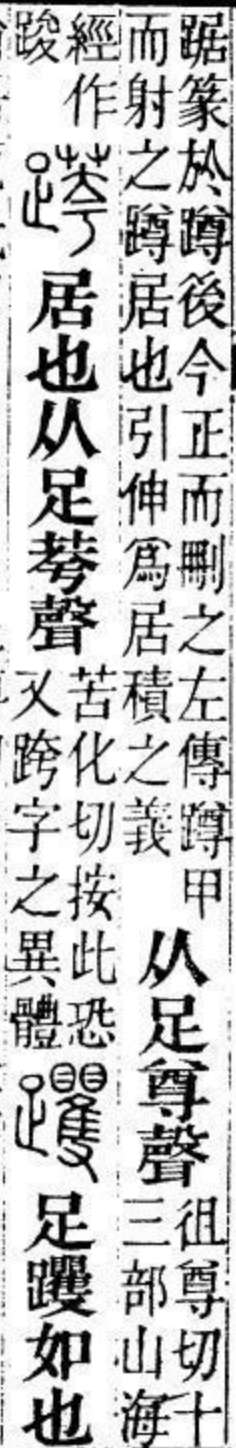 踞篆於蹲後今正而刪之左傳蹲甲
而射之蹲居也引伸爲居積之義
从足尊聲
徂尊切十
三部山海
經作
踆
䠸
居也从足荂聲
苦化切按此恐
又跨字之異體
躩
足躩如也